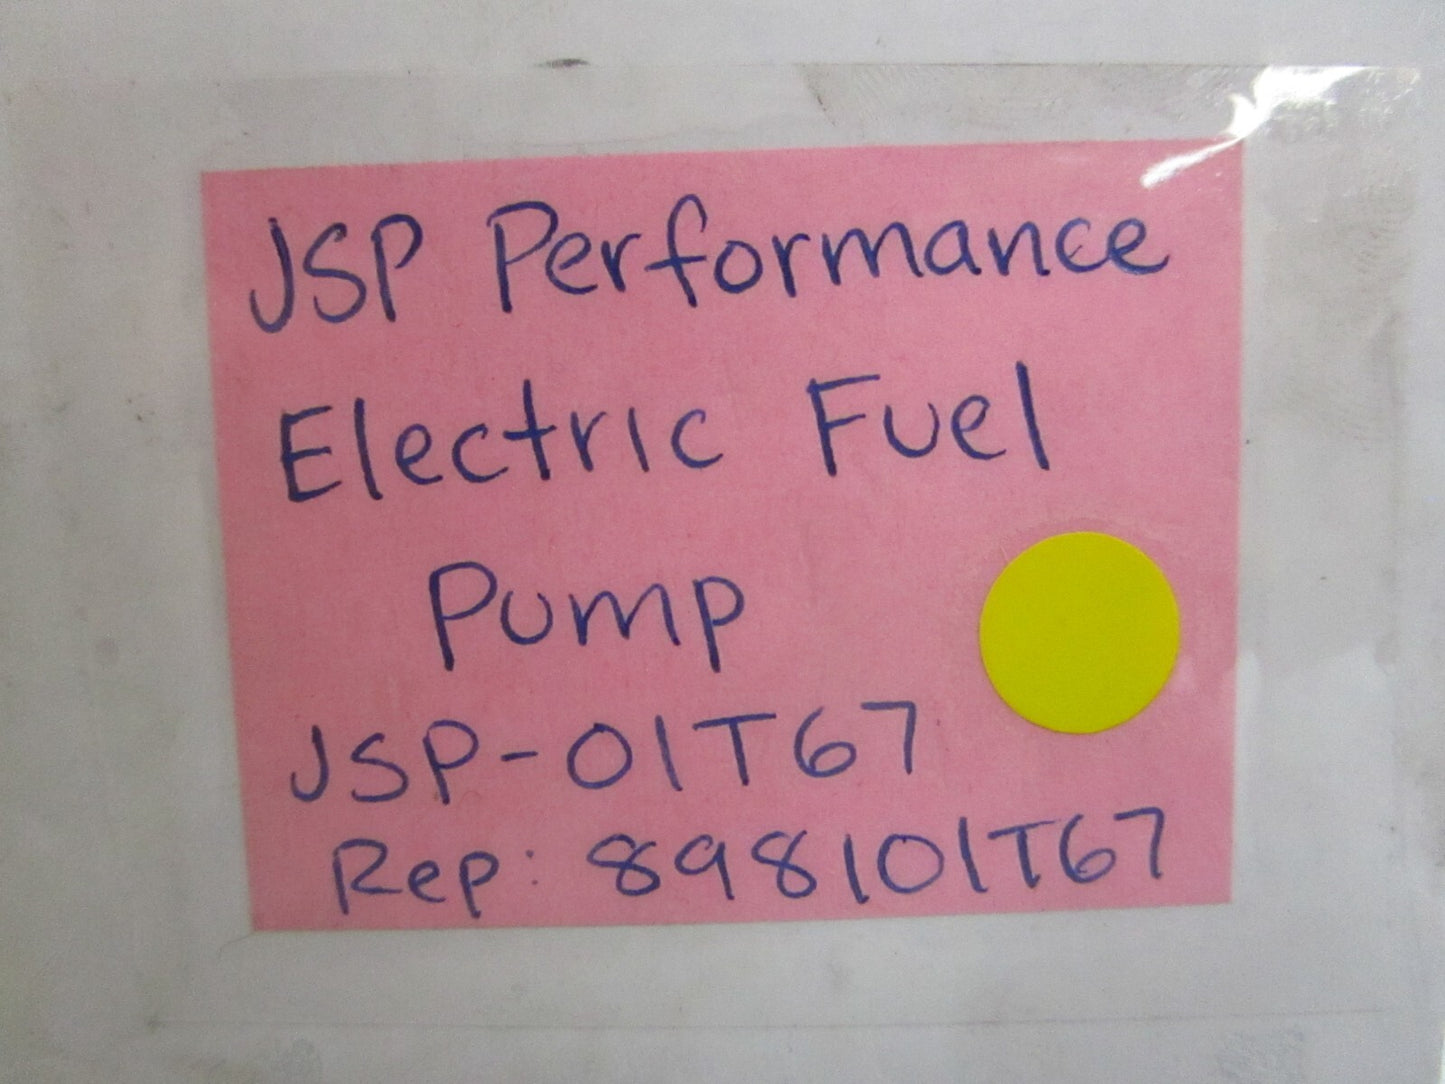 JSP Performance
Electric Fuel
Pump
JSP-01T67
Rep: 898101T67